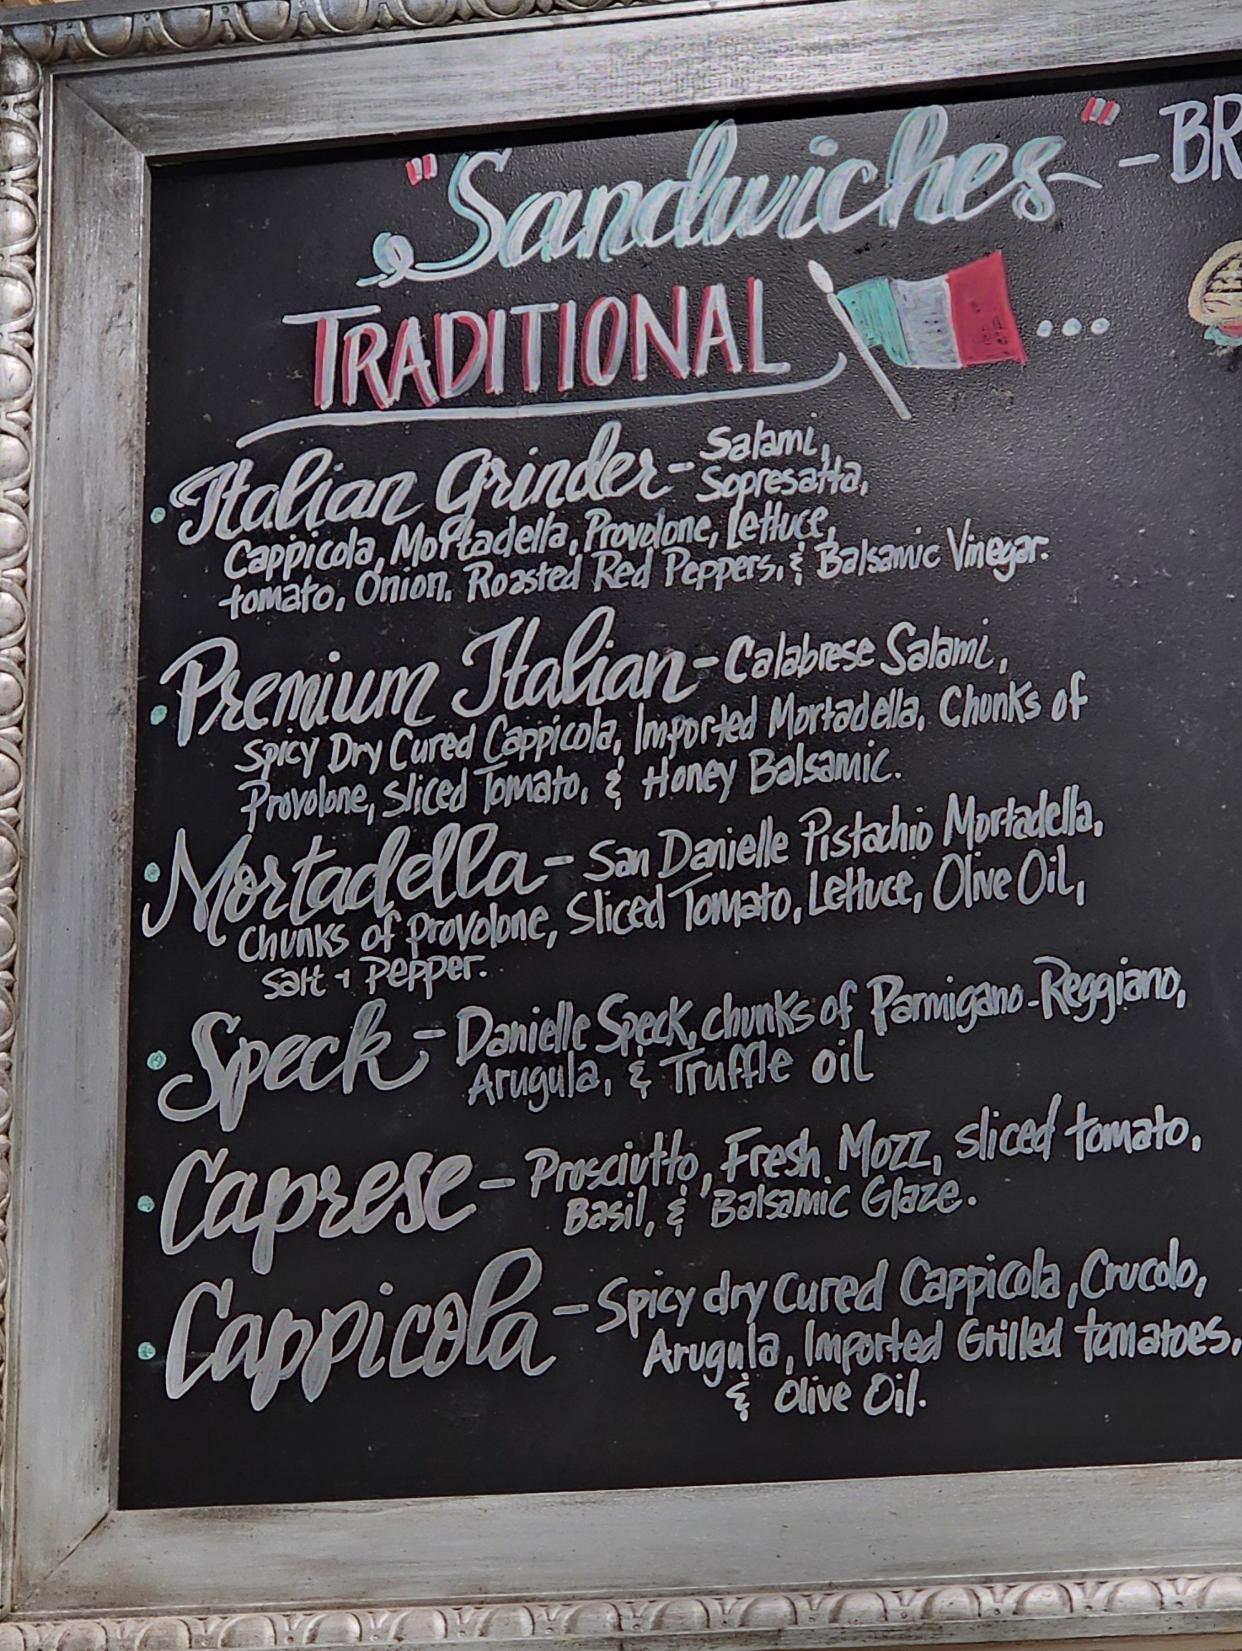 "Sandwiches" - BR
TRADITIONAL ...
• Italian Grinder - Salami,
Sopresatta,
Cappicola, Mortadella, Provolone, Lettuce,
tomato, Onion, Roasted Red Peppers, & Balsamic Vinegar.
• Premium Italian - Calabrese Salami,
Spicy Dry Cured Cappicola, Imported Mortadella, Chunks of
Provolone, Sliced Tomato, & Honey Balsamic.
• Mortadella - San Danielle Pistachio Mortadella,
Chunks of Provolone, Sliced Tomato, Lettuce, Olive Oil,
Salt + Pepper.
• Speck - Danielle Speck, chunks of Parmigano-Reggiano,
Arugula, & Truffle oil
• Caprese - Prosciutto, Fresh Mozz, sliced tomato,
Basil, & Balsamic Glaze.
• Cappicola - Spicy dry cured Cappicola, Crucolo,
Arugula, Imported Grilled tomatoes,
& Olive Oil.